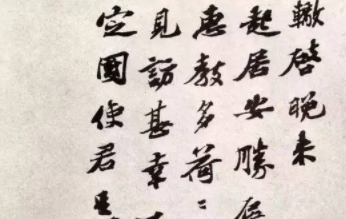 轍啓晚来
起居安勝
惠教多荷〻
見訪甚幸
定國使君